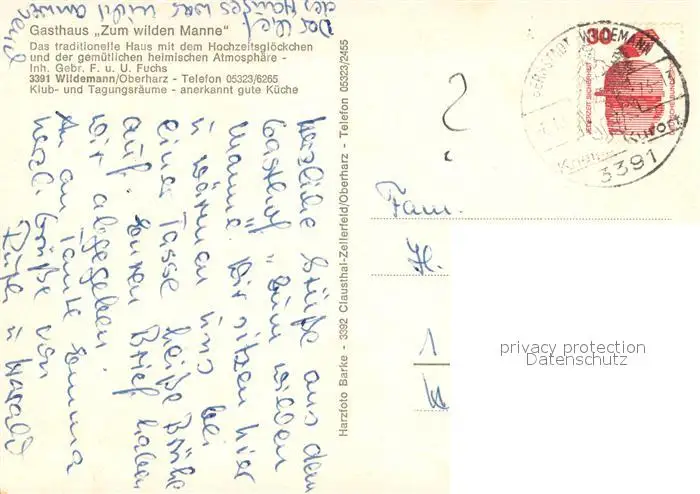 Gasthaus „Zum wilden Manne"
Das traditionelle Haus mit dem Hochzeitsglöckchen
und der gemütlichen heimischen Atmosphäre -
Inh. Gebr. F. u. U. Fuchs
3391 Wildemann/Oberharz - Telefon 05323/6265
Klub- und Tagungsräume - anerkannt gute Küche
Harzfoto Barke - 3392 Clausthal-Zellerfeld/Oberharz - Telefon 05323/2455
Herzliche Grüße aus dem
Gasthof „Zum wilden
Manne". Wir sitzen hier
u wärmen uns bei
einer Tasse heiße Brühe
auf. Euren Brief haben
wir abgegeben.
An Tante Emma
herzl. Grüße von
u Harald
des Hauses war nicht
?
Fam.
H.
1
30
BERGSTADT WILDEMANN
Kurort
3391
JEDERZEIT SICHERHEIT
privacy protection
Datenschutz